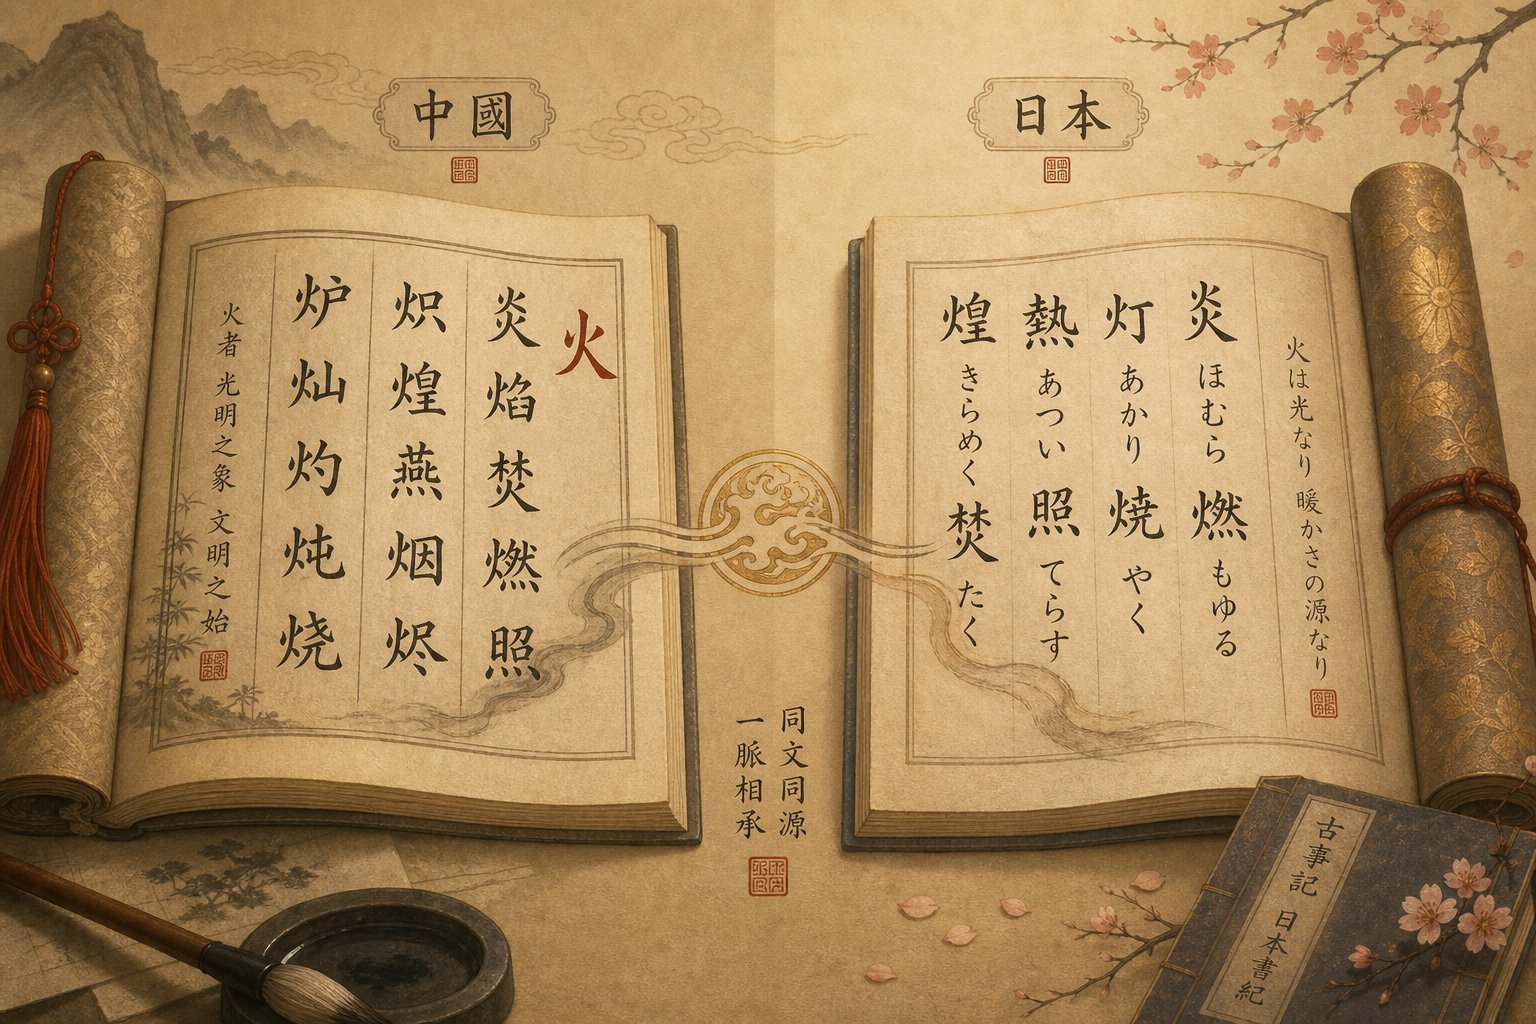 中國
日本
火
炎焰焚燃照
炽煌燕烟烬
炉灿灼炖烧
火者 光明之象 文明之始
火は光なり 暖かさの源なり
炎 ほむら 燃 もゆる
灯 あかり 焼 やく
熱 あつい 照 てらす
煌 きらめく 焚 たく
同文同源
一脈相承
古事記 日本書紀